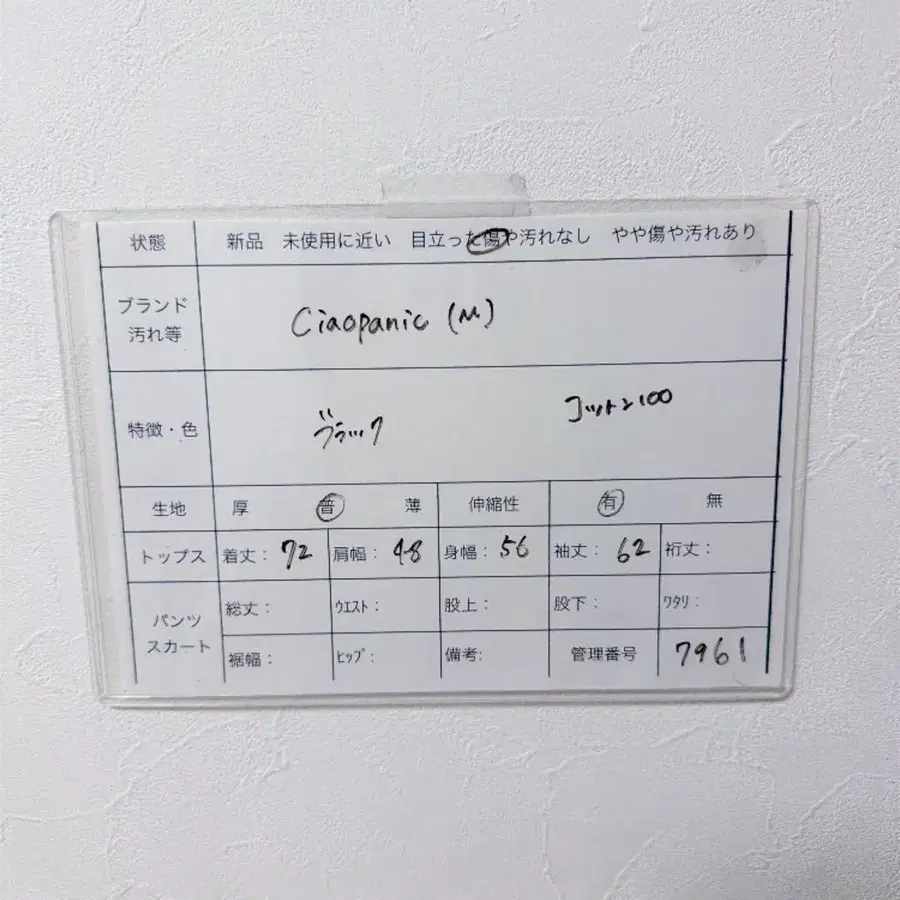 状態 新品 未使用に近い 目立った傷や汚れなし やや傷や汚れあり
ブランド
汚れ等
Ciaopanic (M)
特徴・色 ブラック コットン100
生地 厚 普 薄 伸縮性 有 無
トップス 着丈: 72 肩幅: 48 身幅: 56 袖丈: 62 裄丈:
パンツ
スカート
総丈: ウエスト: 股上: 股下: ワタリ:
裾幅: ヒップ: 備考: 管理番号 7961